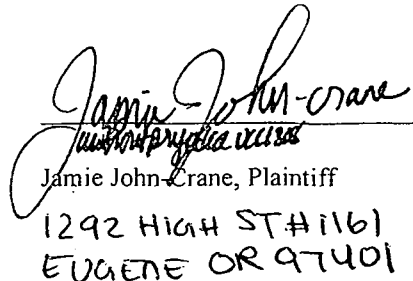 Jamie John-crane
Jamie John-Crane, Plaintiff
1292 HIGH ST #1161
EUGENE OR 97401